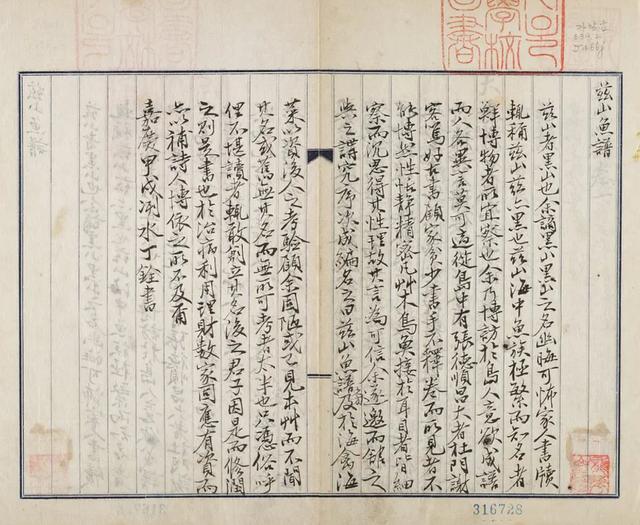 玆山魚譜
玆山者黑山也余謫黑山黑山之名幽晦可怖家人書牘
輒稱玆山玆亦黑也玆山海中魚族極繁而知名者
鮮博物者所宜察也余乃博訪於島人意欲成譜
而人各異言莫可適從島中有張德順昌大者杜門謝
客篤好古書顧家貧少書手不釋卷而所見者不
能博然性恬靜精密凡草木鳥魚接於耳目者皆細
察而沉思得其性理故其言爲可信余遂邀而館之
與之講究序次成編名之曰玆山魚譜旁及於海禽海
菜以資後人之考驗顧余固陋或已見本草而不聞
其名或舊無其名而無所可考者太半也只憑俗呼
俚不堪讀者輒敢創立其名後之君子因是而修潤
之則是書也於治病利用理財數家固應有資而
亦以補詩人博依之所不及爾
嘉慶甲戌洌水丁銓書
316728